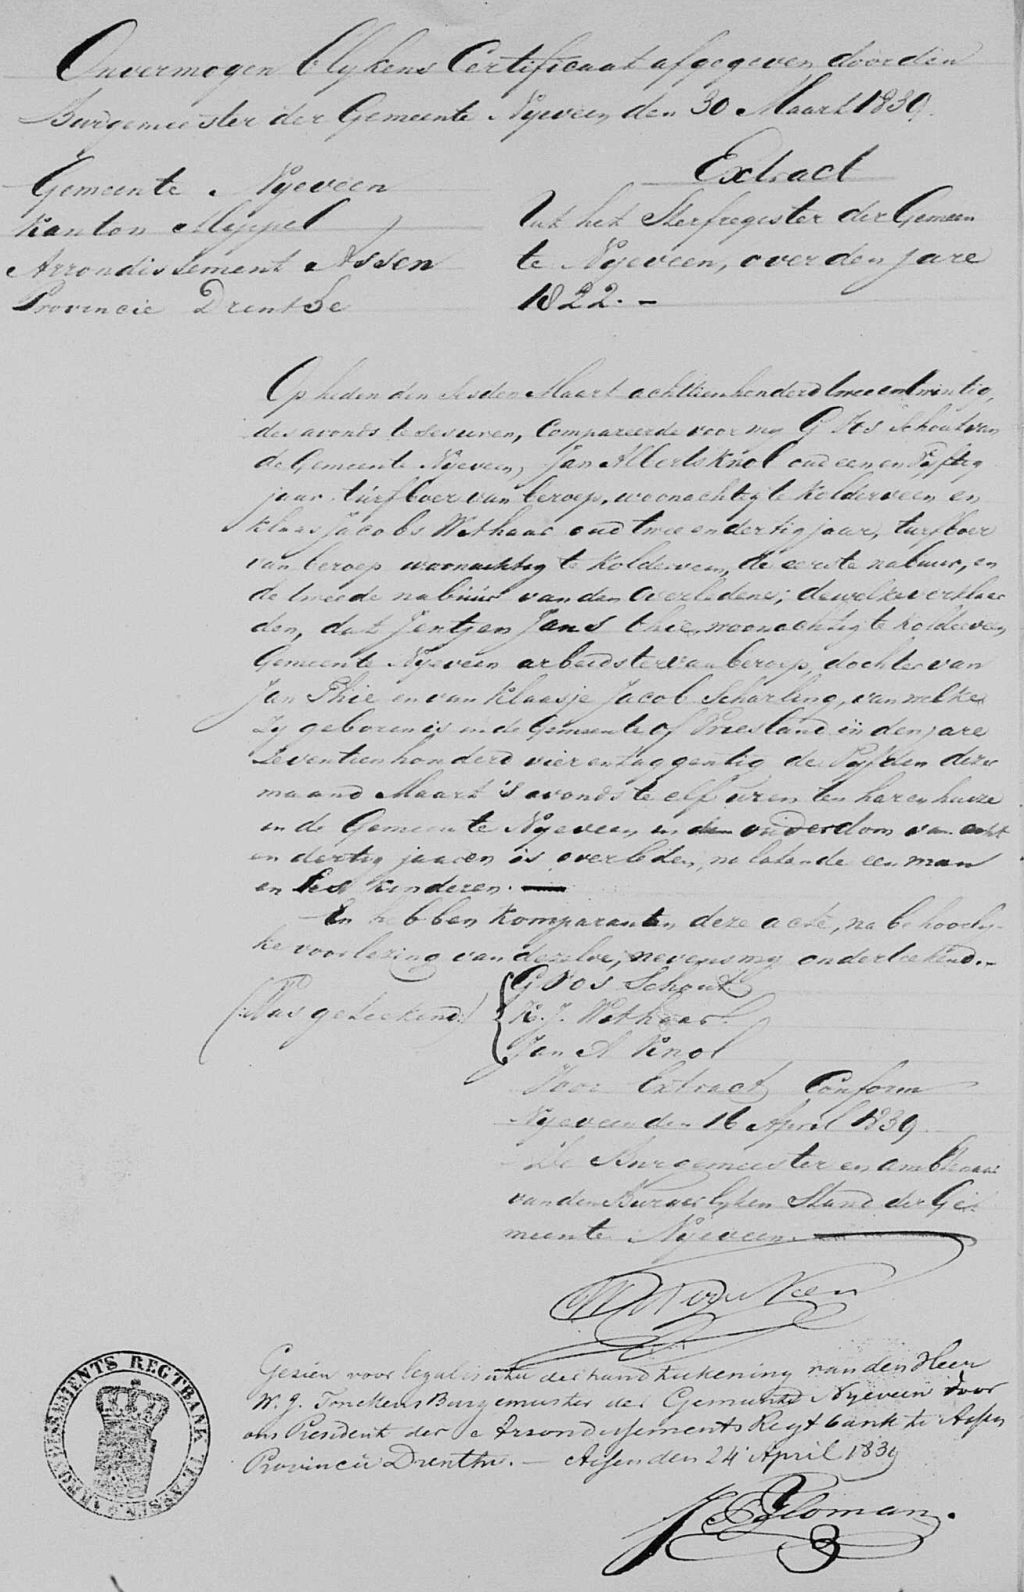 Onvermogen blykens Certificaat afgegeven door den
Burgemeester der Gemeente Nyeveen den 30 Maart 1839.
Gemeente Nyeveen
Kanton Meppel
Arrondissement Assen
Provincie Drenthe
Extract
Uit het Sterfregister der Gemeen
te Nyeveen, over den jare
1822. -
Op heden den sesden Maart achttienhonderd twee en twintig,
des avonds te ses uren, Compareerde voor my G Vos Schout van
de Gemeente Nyeveen, Jan Alberts Knol oud een en vyftig
jaar turfboer van beroep, woonachtig te Kolderveen en
Klaas Jacobs Wethaar oud twee en dertig jaar, turfboer
van beroep woonachtig te Kolderveen, de eerste nabuur, en
de tweede nabuur van den Overledene; dewelke verklaar
den, dat Jentjen Jans Thie, woonachtig te Kolderveen
Gemeente Nyeveen arbeidster van beroep, dochter van
Jan Thie en van Klaasje Jacob Scharling, van welke
zy geboren is in de Gemeente of Vriesland in den jare
Zeventienhonderd vier en taggentig de vyfden dezer
maand Maart 's avonds te elf uren ten haren huize
in de Gemeente Nyeveen in den ouderdom van acht
en dertig jaaren is overleden, nalatende een man
en ses kinderen.
En hebben Komparanten deze acte, na behoorly-
ke voorlezing van dezelve, nevens my ondertekend.-
(Was getekend:) G Vos Schout
K. J. Wethaar
Jan A Knol
Voor Extract Conform
Nyeveen den 16 April 1839.
De Burgemeester en ambtenaar
van den Burgerlyken Stand der Ge-
meente Nyeveen.
Gezien voor legalisatie der handteekening van den Heer
W. J. Tonckens Burgemeester der Gemeente Nyeveen door
ons President der Arrondissements Regtbank te Assen
Provincie Drenthe. - Assen den 24 April 1839
ARRONDISSEMENTS REGTBANK TE ASSEN